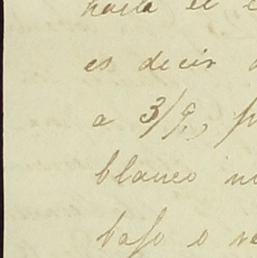 hasta el
es decir
a 3/9, p
blanco
bajo o